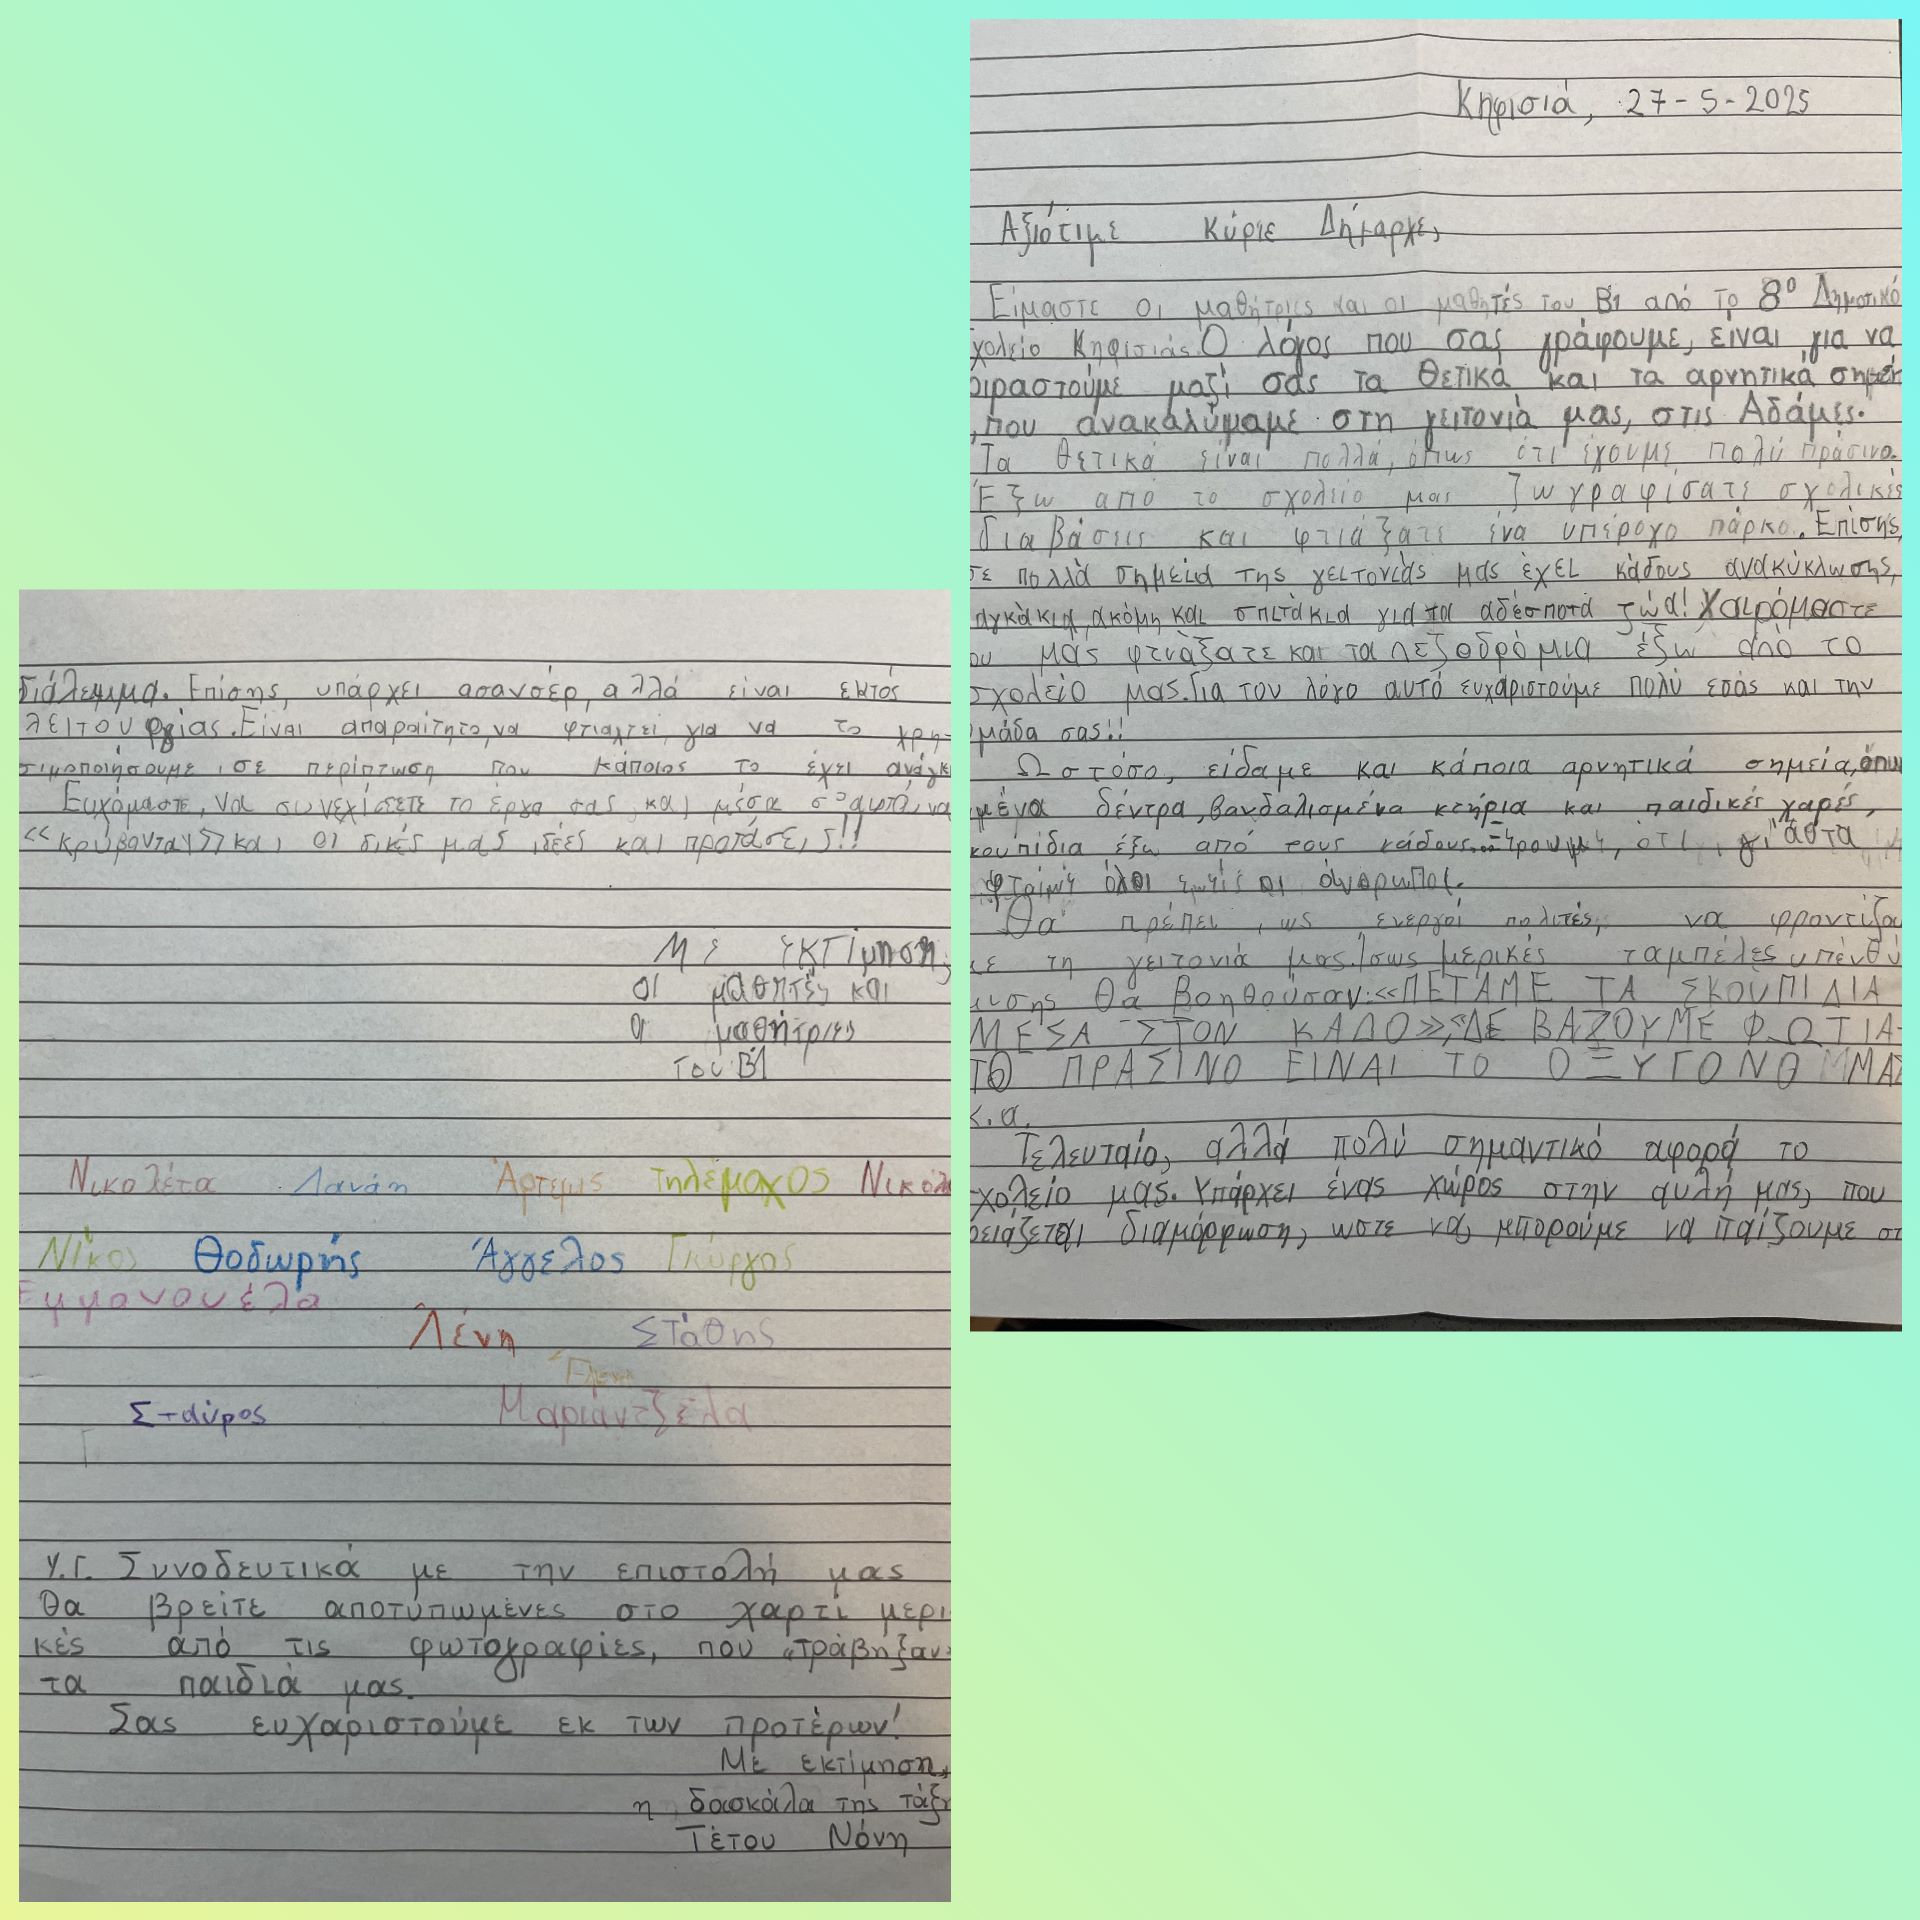 Κηφισιά, 27-5-2025
Αξιότιμε Κύριε Δήμαρχε,
Είμαστε οι μαθήτριες και οι μαθητές του Β1 από το 8º Δημοτικό
χολείο Κηφισιάς. Ο λόγος που σας γράφουμε, είναι για να
οιραστούμε μαζί σας τα θετικά και τα αρνητικά
, που ανακαλύψαμε στη γειτονιά μας, στις Αδάμες.
Τα θετικά είναι πολλά, όπως ότι έχουμε πολύ πράσινο.
Έξω από το σχολείο μας ζωγραφίσατε σχολικές
διαβάσεις και φτιάξατε ένα υπέροχο πάρκο. Επίσης,
σε πολλά σημεία της γειτονιάς μας έχει κάδους ανακύκλωσης,
αγκάκια, ακόμη και σπιτάκια για τα αδέσποτα ζώα! Χαιρόμαστε
ου μας φτιάξατε και τα πεζοδρόμια έξω από το
σχολείο μας. Για τον λόγο αυτό ευχαριστούμε πολύ εσάς και την
μάδα σας!!
Ωστόσο, είδαμε και κάποια αρνητικά σημεία, όπω
μένα δέντρα, βανδαλισμένα κτήρια και παιδικές χαρές,
κουπίδια έξω από τους κάδους. ότι, γι' άστα
φταίμε όλοι εμείς οι άνθρωποι.
Θα πρέπει, ως ενεργοί πολίτες, να φροντίζου
με τη γειτονιά μας. Ίσως μερικές ταμπέλες υπενθύ
μισης θα βοηθούσαν: «ΠΕΤΑΜΕ ΤΑ ΣΚΟΥΠΙΔΙΑ
ΜΕΣΑ ΣΤΟΝ ΚΑΔΟ», «ΔΕ ΒΑΖΟΥΜΕ ΦΩΤΙΑ-
ΤΟ ΠΡΑΣΙΝΟ ΕΙΝΑΙ ΤΟ ΟΞΥΓΟΝΟ ΜΑΣ
κ.α.
Τελευταίο, αλλά πολύ σημαντικό αφορά το
χολείο μας. Υπάρχει ένας χώρος στην αυλή μας, που
ρειάζεται διαμόρφωση, ωστε να μπορούμε να παίζουμε στ
διάλειμμα. Επίσης, υπάρχει ασανσέρ, αλλά είναι εκτός
λειτουργίας. Είναι απαραίτητο, να φτιαχτεί, για να το χρη-
σιμοποιήσουμε, σε περίπτωση που κάποιος το έχει ανάγκ
Ευχόμαστε, να συνεχίσετε το έργο σας και μέσα σ' αυτό, να
«κρύβονται» και οι δικές μας ιδέες και προτάσεις!!
Με εκτίμηση,
οι μαθητές και
οι μαθήτριες
του Β1
Νικολέτα Δανάη Άρτεμις Τηλέμαχος Νικόλα
Νίκος Θοδωρής Άγγελος Γιώργος
Εμμανουέλα
Λένη Στάθης
Σταύρος Μαριάντζελα
Υ.Γ. Συνοδευτικά με την επιστολή μας
θα βρείτε αποτυπωμένες στο χαρτί μερι
κές από τις φωτογραφίες, που «τράβηξαν»
τα παιδιά μας.
Σας ευχαριστούμε εκ των προτέρων!
Με εκτίμηση,
η δασκάλα της τάξη
Τέτου Νόνη